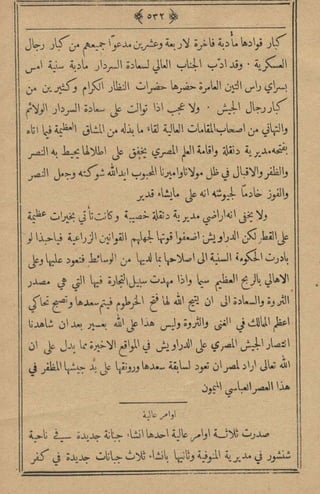 ﴿ ٥٣٢ ﴾
كبار قوادها مأدبة فاخرة لاربعة وعشرين مدعوًا جميعهم من كبار رجال
العسكرية . وقد ادّب الجناب العالي لسعادة السردار مادبة سنية امس
بسراي راس التين العامرة حضرها حضرات النظار الكرام وكثيرين من
كبار رجال الجيش . ولا عجب اذا توالت على سعادة السردار الولائم
والتهاني من اصحاب المقامات العالية لقاء ما بذله من المشاق العظيمة فيما اتاه
بفتحه مديرية دنقلة واقامة العلم المصري يخفق على اطلالها يحيط به النصر
والظفر والاقبال في ظل مولانا واميرنا المحبوب ايد الله شوكته وجعل النصر
والفوز خادمًا لجيوشه انه على ما يشاء قدير
ولا يخفى انه اراضي مديرية دنقلة خصيبة وكانت تأتي بخيرات عظيمة
على القطر لكن الدراويش اضعفوا قوتها لجهلهم القوانين الزراعية فياحبذا لو
بادرت الحكومة السنية الى اصلاحها بما لديها من الوسائط فتعود عليها وعلى
الاهالي بالربح العظيم سيما واذا مهدت سبيل التجارة فيها التي هي مصدر
الثروة والسعادة الى ان يتيح الله لها فتح الخرطوم فيتم سعدها وتصبح تحاكي
اعظم الممالك في الغنى والثروة وليس هذا على الله بعسير بعد ان شاهدنا
انتصار الجيش المصري على الدراويش في المواقع الاخيرة مما يدل على ان
الله تعالى اراد لمصر ان تعود لسابقة سعدها ورونقها على يد جيشها المظفر في
هذا العصر العباسي الميمون
اوامر عالية
صدرت ثلاثة اوامر عالية احدها انشاء جبانة جديدة في ناحية
شنشور في مديرية المنوفية وثانيها بانشاء ثلاث جبانات جديدة في كفر